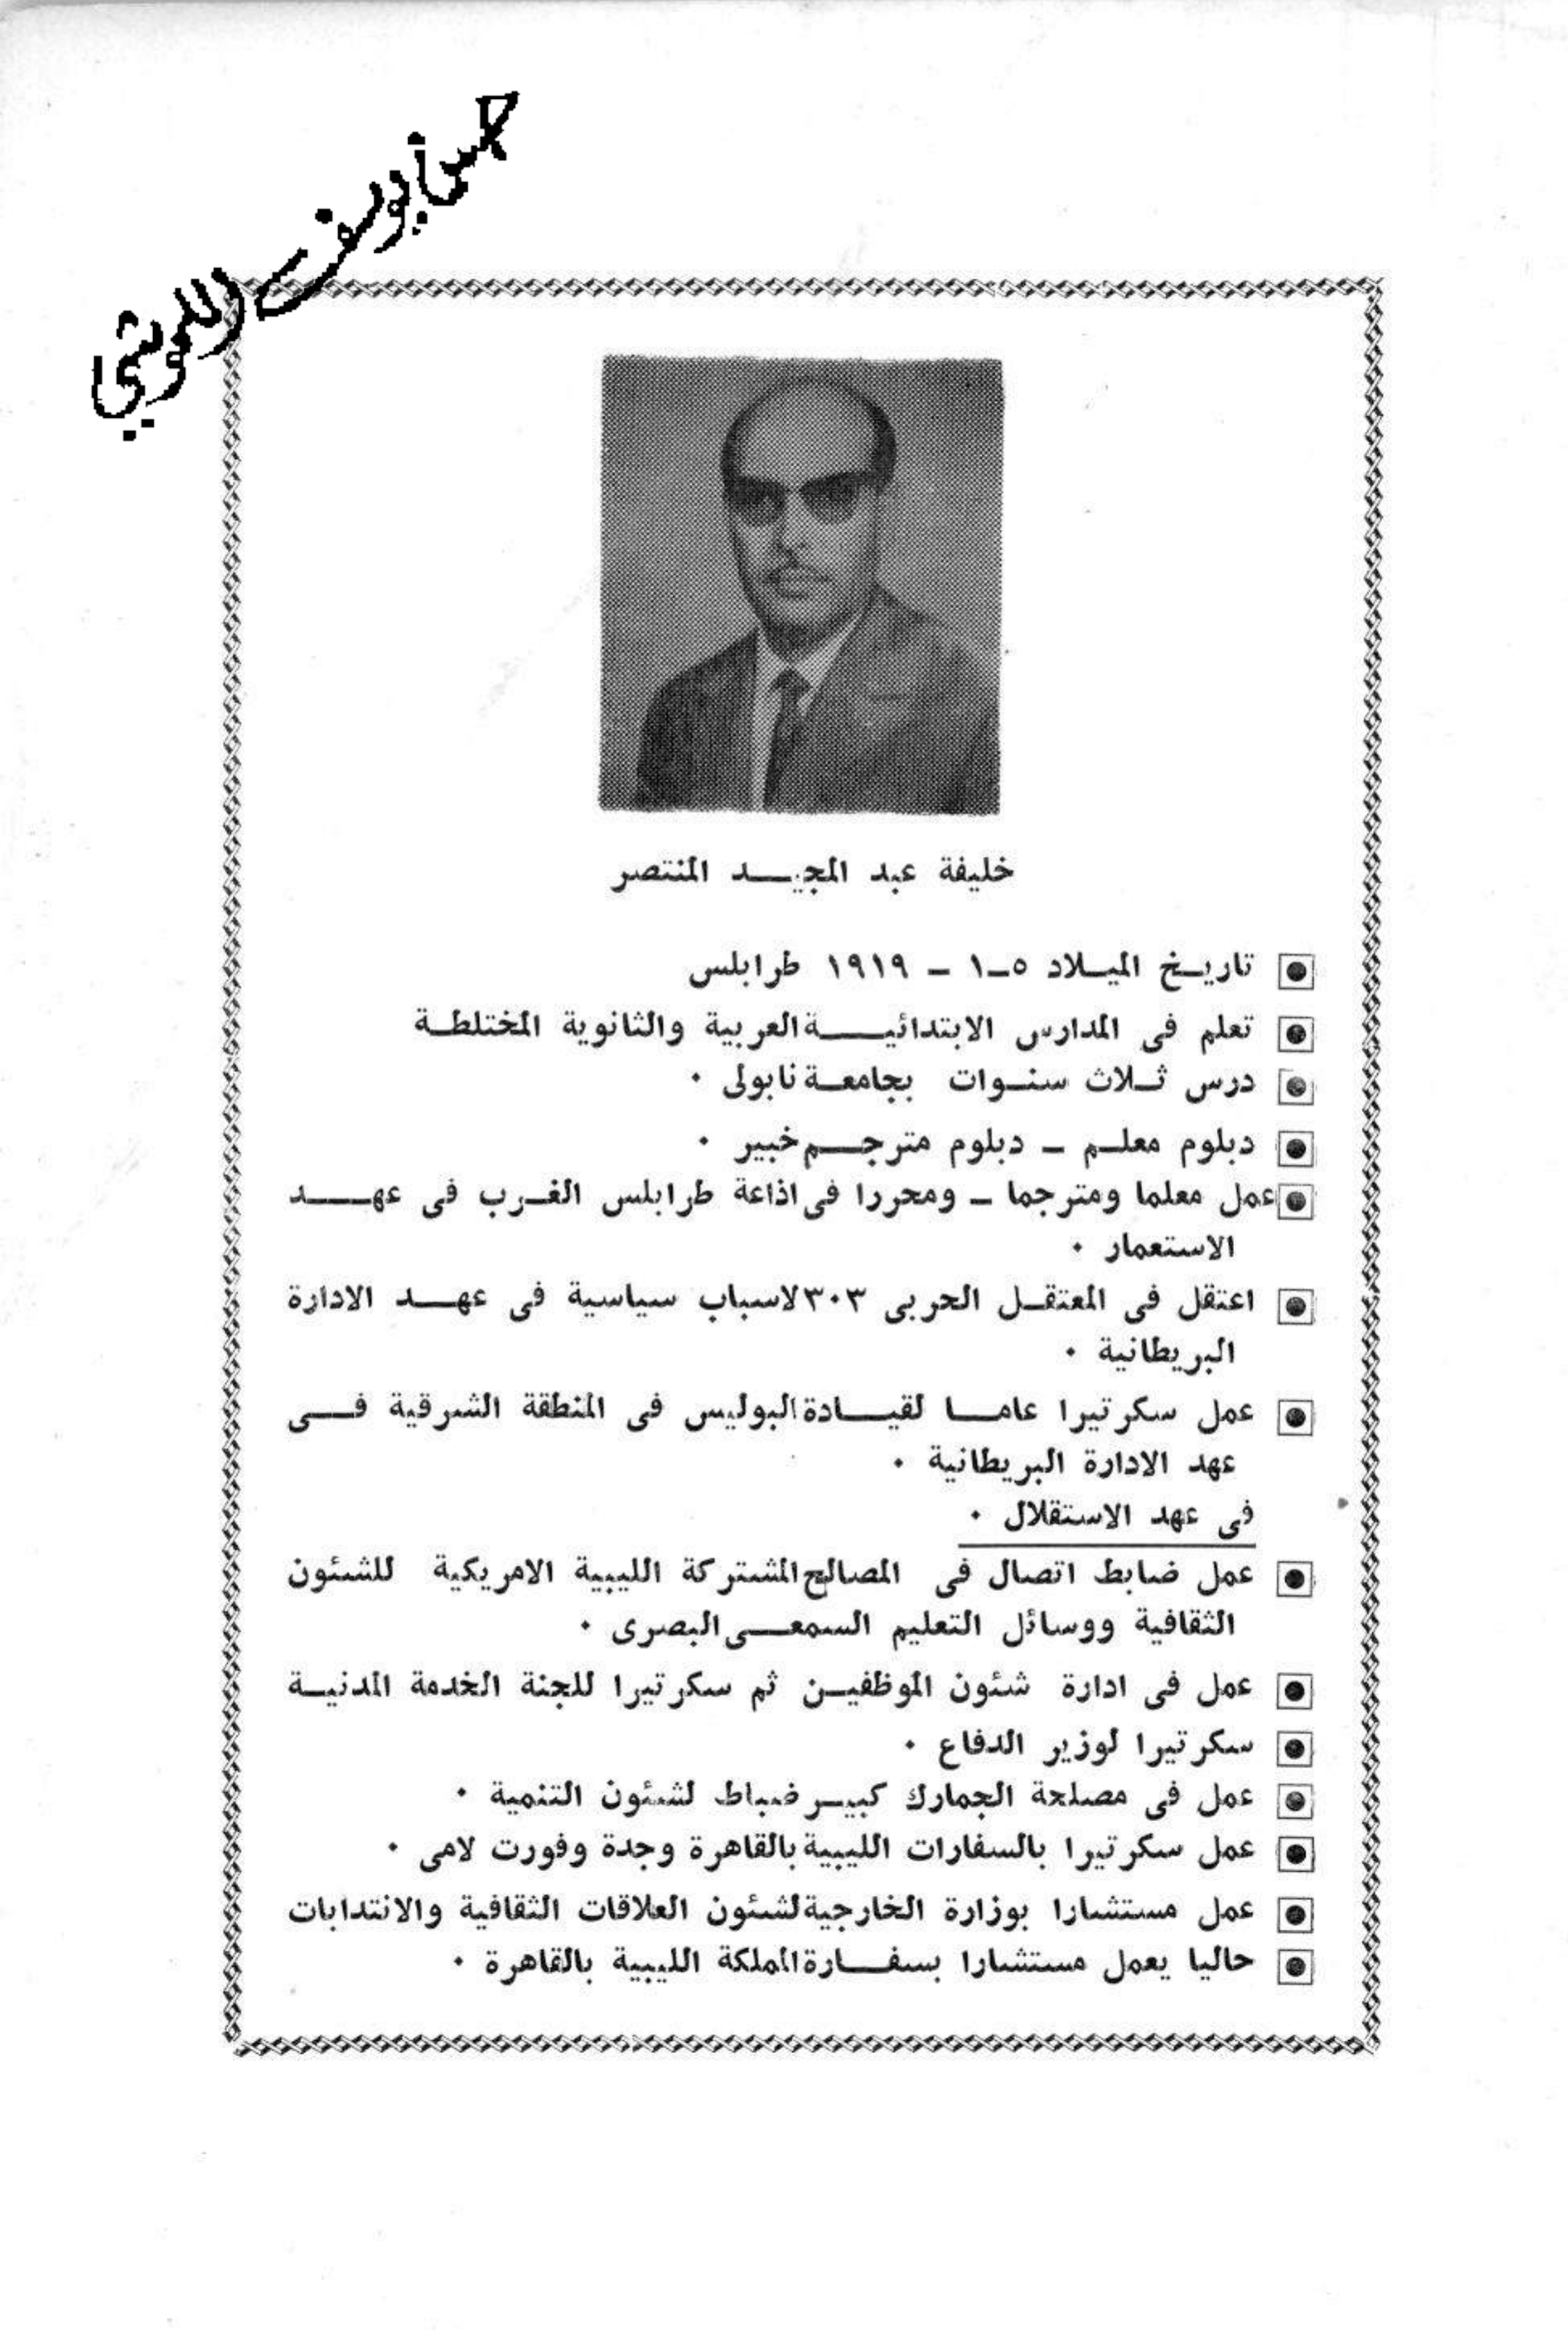 حسن يوسف اللموشي
خليفة عبد المجيد المنتصر
تاريخ الميلاد ٥-١ - ١٩١٩ طرابلس
تعلم فى المدارس الابتدائية العربية والثانوية المختلطة
درس ثلاث سنوات بجامعة نابولى ٠
دبلوم معلم - دبلوم مترجم خبير ٠
عمل معلما ومترجما - ومحررا فى اذاعة طرابلس الغرب فى عهد
الاستعمار ٠
اعتقل فى المعتقل الحربى ٣٠٣ لاسباب سياسية فى عهد الادارة
البريطانية ٠
عمل سكرتيرا عاما لقيادة البوليس فى المنطقة الشرقية فى
عهد الادارة البريطانية ٠
فى عهد الاستقلال ٠
عمل ضابط اتصال فى المصالح المشتركة الليبية الامريكية للشئون
الثقافية ووسائل التعليم السمعى البصرى ٠
عمل فى ادارة شئون الموظفين ثم سكرتيرا للجنة الخدمة المدنية
سكرتيرا لوزير الدفاع ٠
عمل فى مصلحة الجمارك كبير ضباط لشئون التنمية ٠
عمل سكرتيرا بالسفارات الليبية بالقاهرة وجدة وفورت لامى ٠
عمل مستشارا بوزارة الخارجية لشئون العلاقات الثقافية والانتدابات
حاليا يعمل مستشارا بسفارة المملكة الليبية بالقاهرة ٠